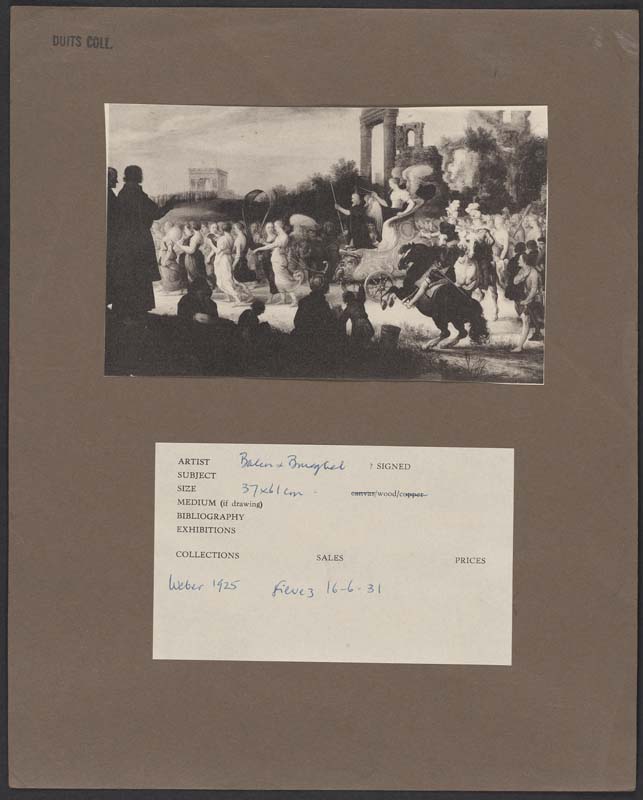 DUITS COLL.
ARTIST Balen & Brueghel ? SIGNED
SUBJECT
SIZE 37x61cm - canvas/wood/copper
MEDIUM (if drawing)
BIBLIOGRAPHY
EXHIBITIONS
COLLECTIONS SALES PRICES
Weber 1925 Fievez 16-6-31